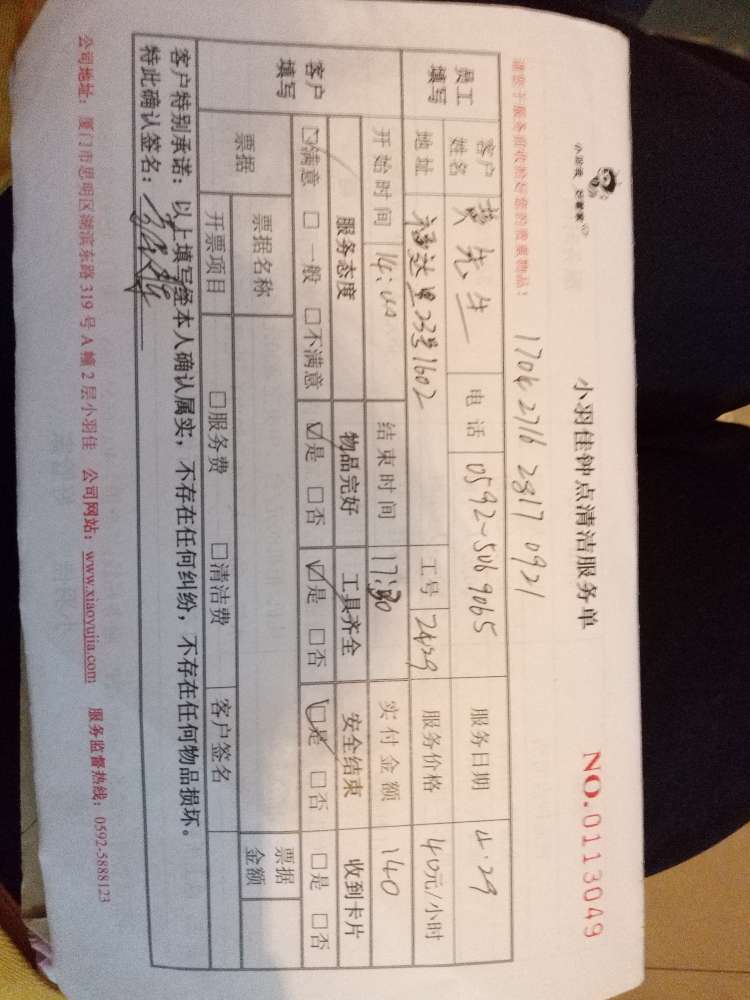 小羽佳 好管家
小羽佳钟点清洁服务单
NO.0113049
1704 2716 2817 0921
请您于服务前收捡好您的贵重物品!
员工填写 客户姓名 黄先生 电话 0592-5069065 服务日期 4.29
地址 福达里23号1602 工号 2429 服务价格 40元/小时
开始时间 14:00 结束时间 17:30 实付金额 140
客户填写 服务态度 物品完好 工具齐全 安全结束 收到卡片
☑满意 □一般 □不满意 ☑是 □否 ☑是 □否 ☑是 □否 □是 □否
票据 票据名称 票据金额
开票项目 □服务费 □清洁费 客户签名
客户特别承诺:以上填写经本人确认属实,不存在任何纠纷,不存在任何物品损坏。
特此确认签名:
公司地址:厦门市思明区湖滨东路319号A幢2层小羽佳 公司网站:www.xiaoyujia.com 服务监督热线:0592-5888123